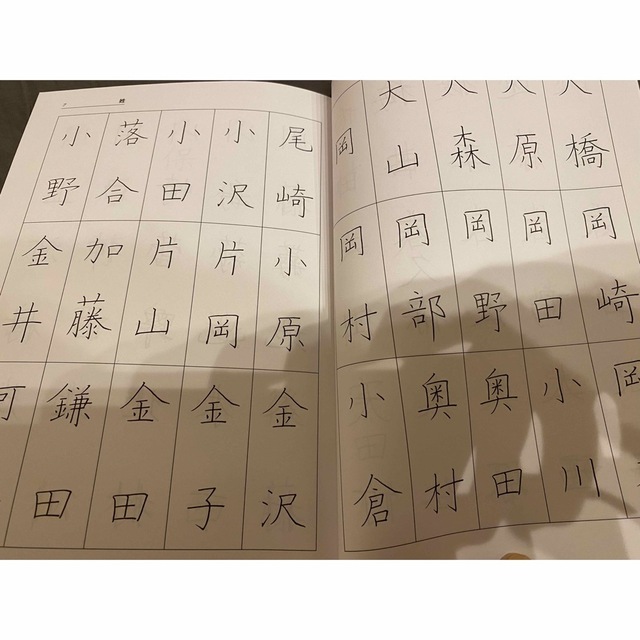 橋
原
森
大山
岡
岡崎
岡田
岡野
岡部
岡村
岡
小川
奥田
奥村
小倉
姓
尾崎
小沢
小田
落合
小野
小原
片岡
片山
加藤
金井
金沢
金子
金田
鎌田